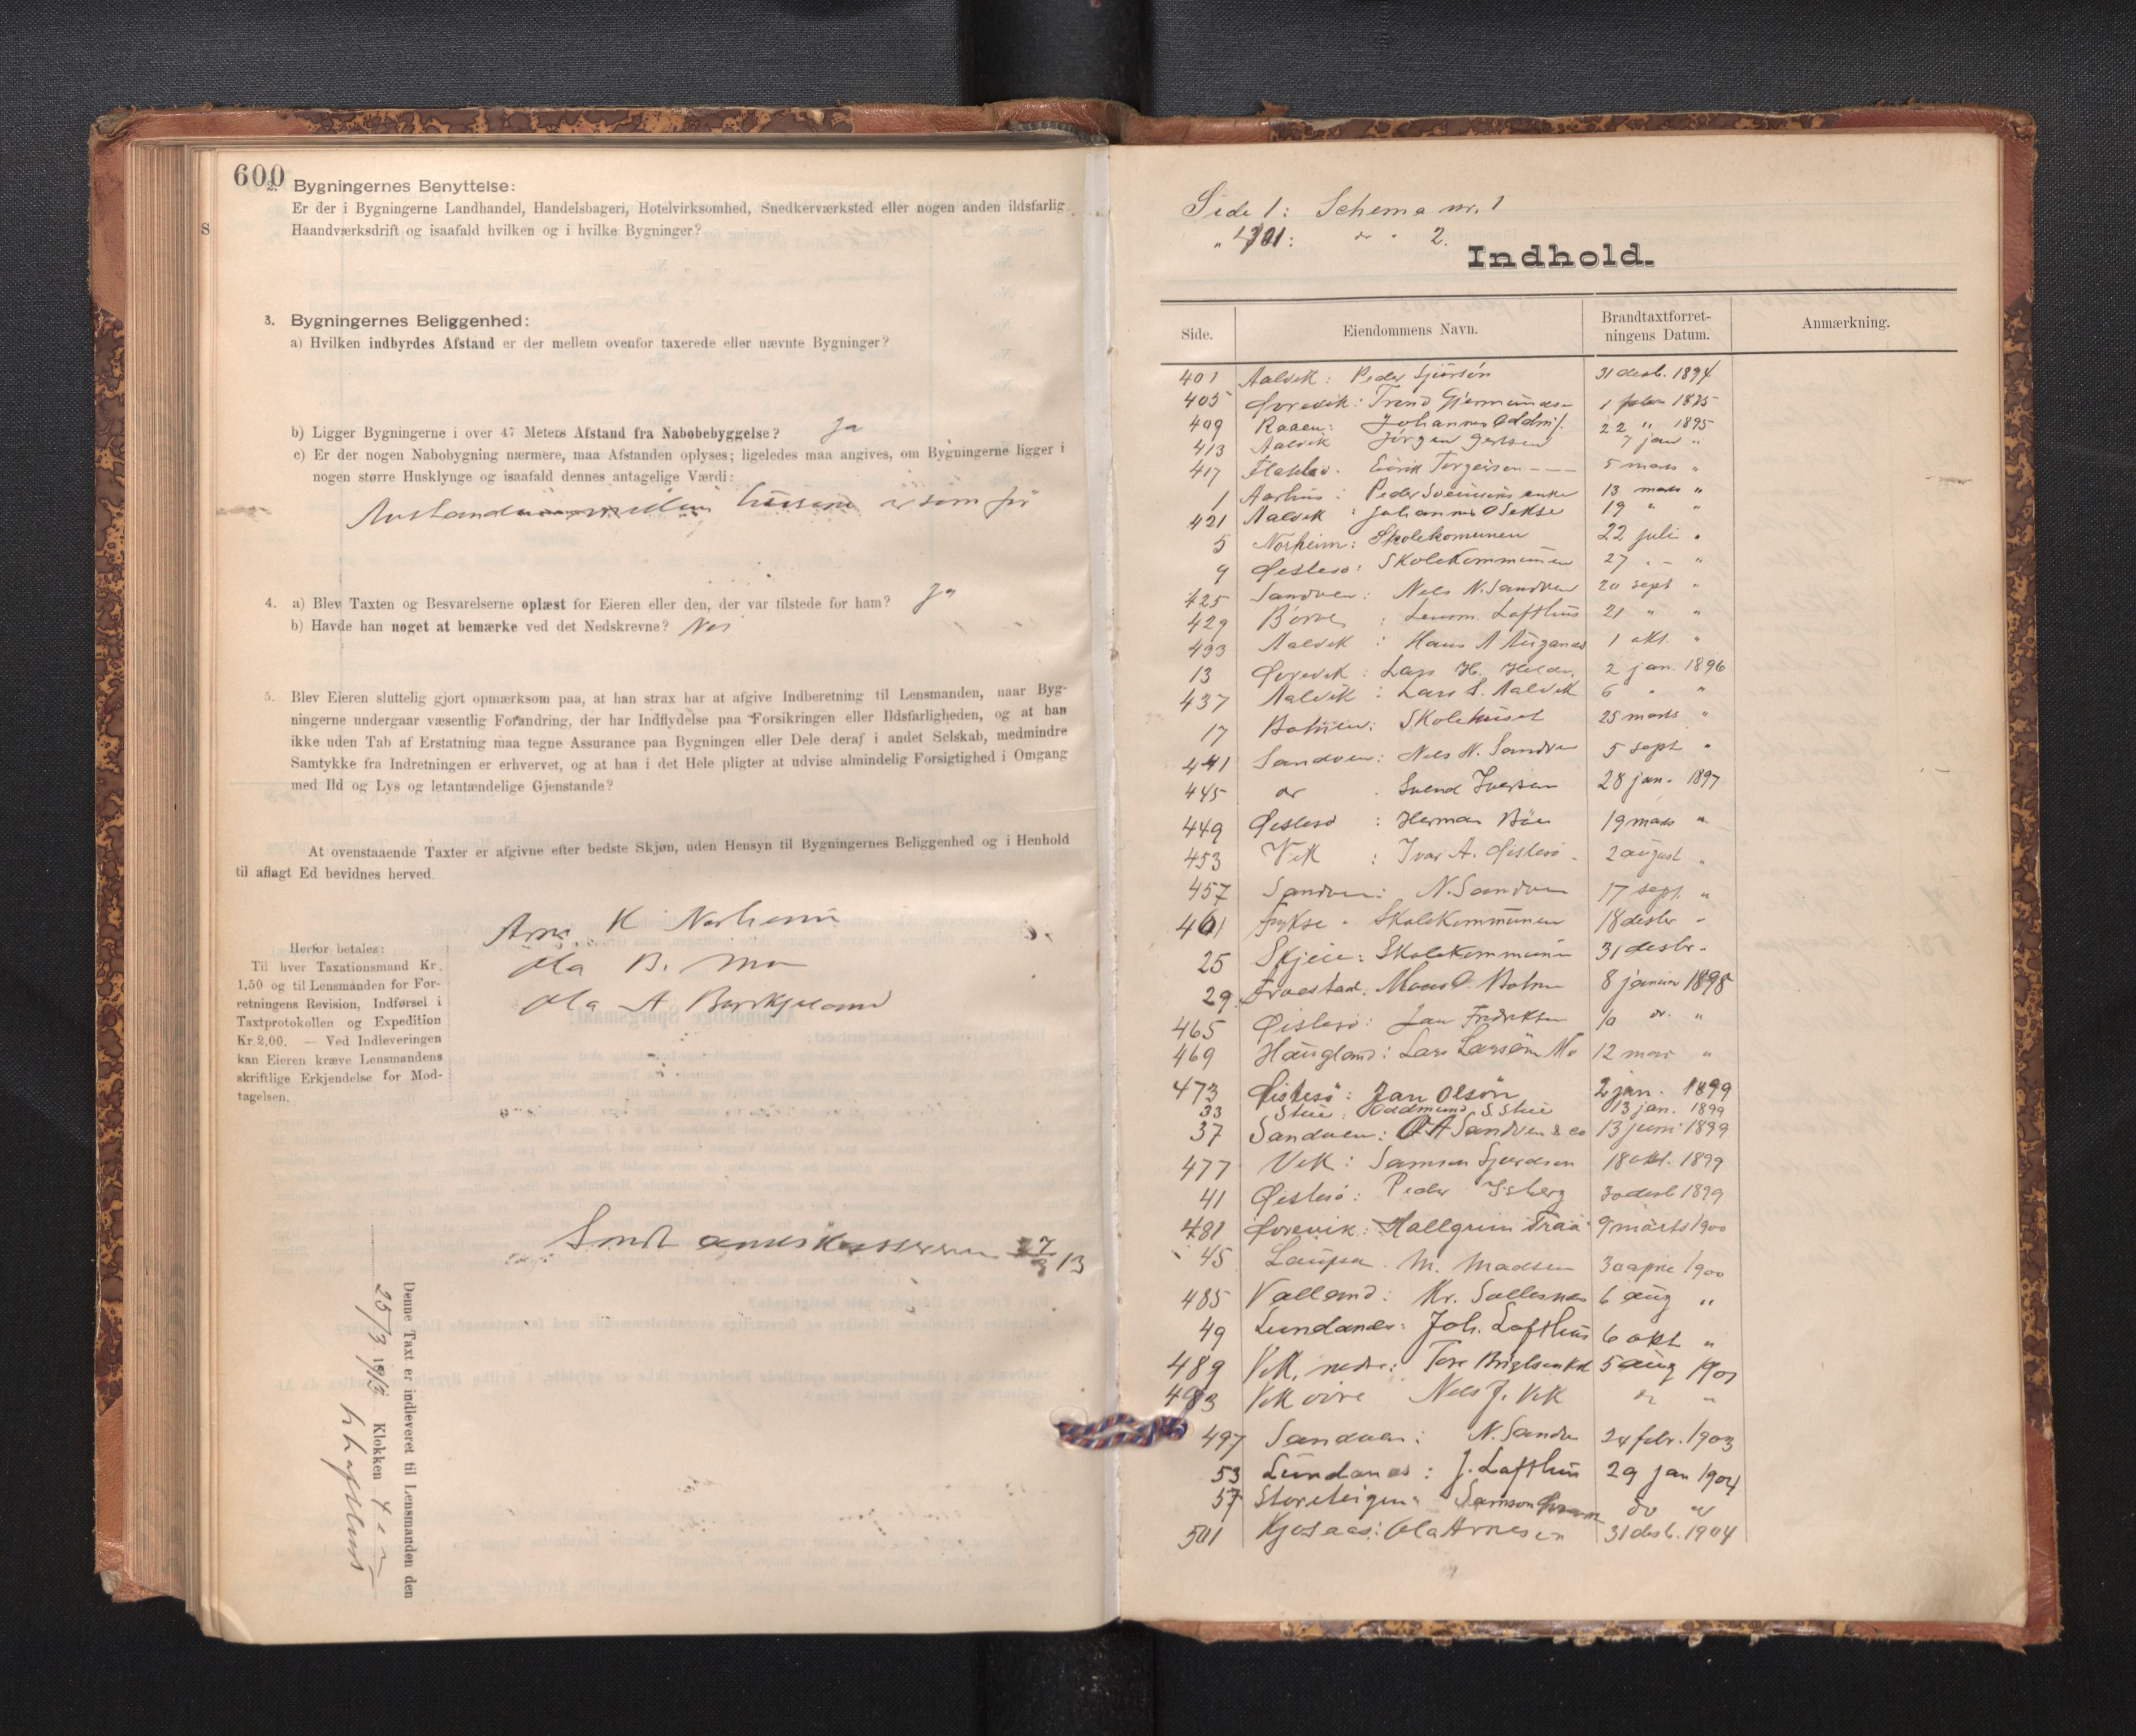 600
2. Bygningernes Benyttelse:
Er der i Bygningerne Landhandel, Handelsbageri, Hotelvirksomhed, Snedkerværksted eller nogen anden ildsfarlig
Haandværksdrift og isaafald hvilken og i hvilke Bygninger?
S
3. Bygningernes Beliggenhed:
a) Hvilken indbyrdes Afstand er der mellem ovenfor taxerede eller nævnte Bygninger?
b) Ligger Bygningerne i over 47 Meters Afstand fra Nabobebyggelse? Ja
c) Er der nogen Nabobygning nærmere, maa Afstanden oplyses; ligeledes maa angives, om Bygningerne ligger i
nogen større Husklynge og isaafald dennes antagelige Værdi:
husene er som før
4. a) Blev Taxten og Besvarelserne oplæst for Eieren eller den, der var tilstede for ham? Ja
b) Havde han noget at bemærke ved det Nedskrevne? Nei
5. Blev Eieren sluttelig gjort opmærksom paa, at han strax har at afgive Indberetning til Lensmanden, naar Byg-
ningerne undergaar væsentlig Forandring, der har Indflydelse paa Forsikringen eller Ildsfarligheden, og at han
ikke uden Tab af Erstatning maa tegne Assurance paa Bygningen eller Dele deraf i andet Selskab, medmindre
Samtykke fra Indretningen er erhvervet, og at han i det Hele pligter at udvise almindelig Forsigtighed i Omgang
med Ild og Lys og letantændelige Gjenstande?
At ovenstaaende Taxter er afgivne efter bedste Skjøn, uden Hensyn til Bygningernes Beliggenhed og i Henhold
til aflagt Ed bevidnes herved.
Arne K Norheim
Ola B. Mo
Ola A Berkjeland
Herfor betales:
Til hver Taxationsmand Kr.
1,50 og til Lensmanden for For-
retningens Revision, Indførsel i
Taxtprotokollen og Expedition
Kr. 2.00. — Ved Indleveringen
kan Eieren kræve Lensmandens
skriftlige Erkjendelse for Mod-
tagelsen.
Sendt amtskassereren 27/3 13
Denne Taxt er indleveret til Lensmanden den
25/3 1913 Klokken 4 em
Lofthus
Side 1: Schema nr. 1
" 401: do " 2.
Indhold.
Side. Eiendommens Navn. Brandtaxtforret-
ningens Datum. Anmærkning.
401 Aalvik: Peder Sjursøn 31 desb. 1894
405 Øvrevik: Trond Gjermundsen 1 1895
409 Raaen: Johannes Oddmf. 22 " 1895
413 Aalvik Jørgen 7 jan "
417 Eirik Torgeirsen 5 mars "
1 Aarhus: Peder Sveinsens enke 13 mars "
421 Aalvik: Johannes O Sekse 19 " "
5 Norheim: Skolekomunen 22 juli "
9 Østesø: Skolekommunen 27 " "
425 Sandven: Nels N. Sandven 20 sept "
429 Børve: Lensm. Lofthus 21 " "
433 Aalvik: Hans A 1 okt. "
13 Øvrevik: Lars H. 2 jan. 1896
437 Aalvik: Lars S. Aalvik 6 " "
17 Botnen: Skolehuset 25 mars "
441 Sandven: Nels N. Sandven 5 sept "
445 do . Svend Iversen 28 jan. 1897
449 Østesø: Herman Bøe 19 mars "
453 Vik: Ivar A. Østesø 2 august "
457 Sandven: N. Sandven 17 sept. "
461 Fykse - Skolekommunen 18 desbr "
25 Skjeie: Skolekommunen 31 desbr.
29 Botnen 8 januar 1898
465 Østesø: Jan Fredriksen 10 do. "
469 Haugland: Lars Larsøn Mo 12 mai "
473 Østesø: Jan Olsøn 2 jan. 1899
33 Steie: Oddmund S Steie 13 jan. 1899
37 Sandven: O A Sandven & co 13 juni 1899
477 Vik: Samson Sjurdsen 18 okt. 1899
41 Østesø: Peder Isberg 30 desb 1899
481 Øvrevik: Hallgrim Traa 9 marts 1900
45 Laupsa. M. Madsen 30 april 1900
485 Valland: Kr. Sallesnes 6 aug "
49 Lundanes: Joh. Lofthus 6 okt "
489 Vik, nedre: Tore 5 aug 1901
493 Vik øvre Nels J. Vik do "
497 Sandven: N. Sandven 24 febr. 1903
53 Lundanes: J. Lofthus 29 jan 1904
57 Storeteigen: Samson do "
501 Kjosaas: Ola Arnesen 31 desb. 1904